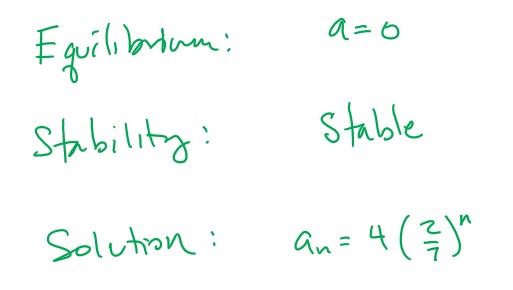 Equilibrium: a = 0
Stability: Stable
Solution: aₙ = 4 (2/7)ⁿ